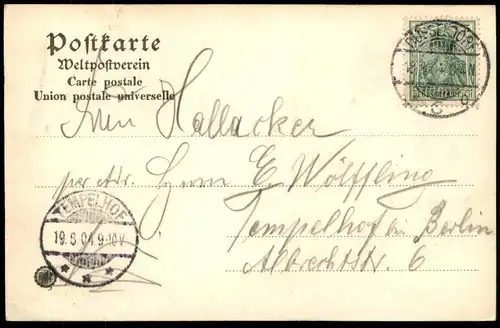 Postkarte
Weltpostverein
Carte postale
Union postale universelle
DÜSSELDORF
Hallacker
per Adr. E. Wölffling
Tempelhof bei Berlin
Albrechtstr. 6
TEMPELHOF
19.6.04.9-10V.